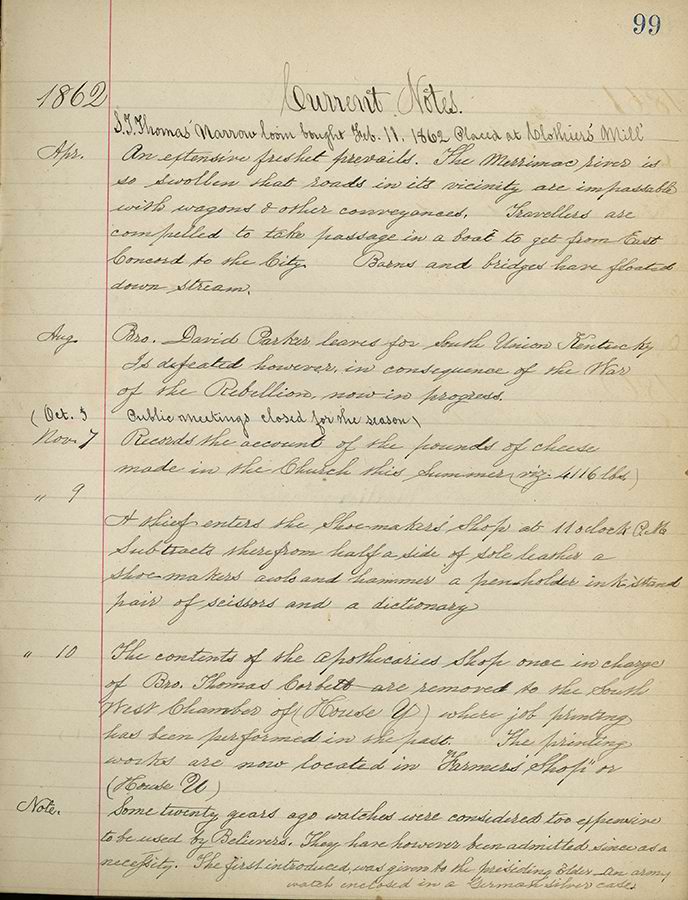 99
1862 Current Notes.
S.J. Thomas' Narrow loom bought Feb. 11, 1862 Placed at Clothiers' Mill
Apr. An extensive freshet prevails. The Merrimac river is
so swollen that roads in its vicinity are impassable
with wagons & other conveyances. Travellers are
compelled to take passage in a boat to get from East
Concord to the City. Barns and bridges have floated
down stream.
Aug. Bro. David Parker leaves for South Union Kentucky
Is defeated however, in consequence of the War
of the Rebellion, now in progress.
(Oct. 5 Public meetings closed for the season)
Nov. 7 Records the account of the pounds of cheese
made in the Church this Summer (viz. 4116 lbs)
" 9
A thief enters the Shoe-makers' Shop at 11 oclock P.M.
Subtracts therefrom half a side of sole leather a
shoe-makers awl and hammer a pen-holder ink-stand
pair of scissors and a dictionary
" 10 The contents of the Apothecaries Shop once in charge
of Bro. Thomas Corbett are removed to the South
West Chamber of (House Y) where job printing
has been performed in the past. The printing
works are now located in "Farmers' Shop" or
(House U)
Note. Some twenty years ago watches were considered too expensive
to be used by Believers. They have however been admitted since as a
necessity. The first introduced, was given to the presiding Elder an army
watch inclosed in a German silver case.